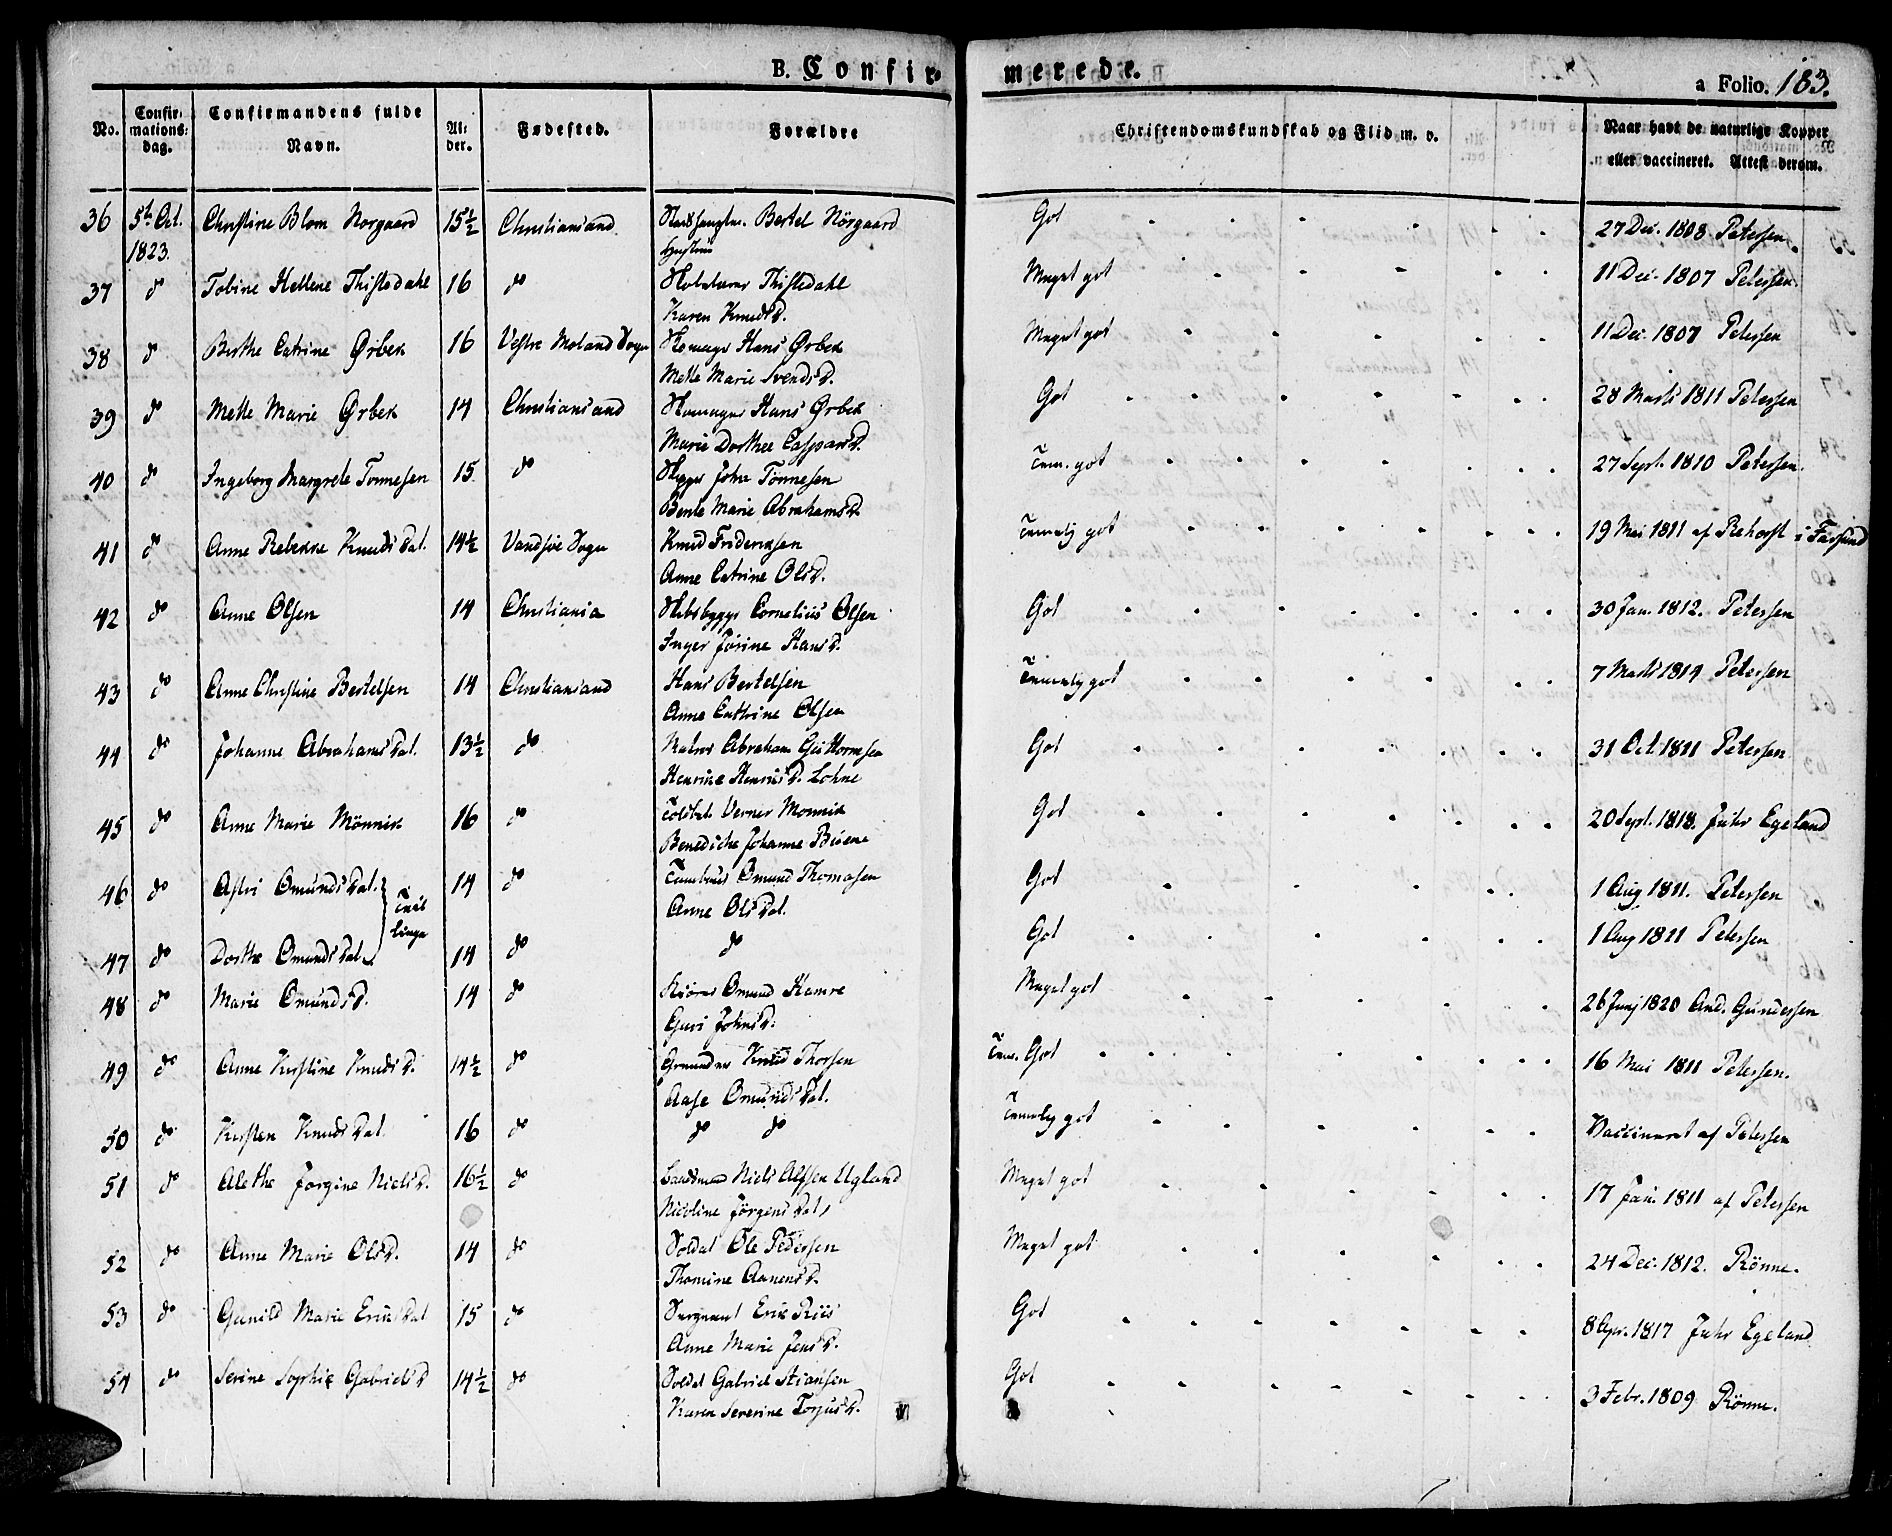 B. Confir-
merede.
a Folio. 183.
No.
Confir-
mations-
dag.
Confirmandens fulde
Navn.
Al-
der.
Fødested.
Forældre
Christendomskundskab og Flid m. v.
Naar havt de naturlige Kopper
eller vaccineret. Attest derom.
36 5te Oct. Christine Blom Norgaard 15½ Christiansand. Bertel Nörgaard Got 27 Dec. 1808 Petersen
1823. Hustrue
37 do Tobine Hellene Thistedahl 16 do Thistedahl Meget got 11 Dec. 1807 Petersen.
Karen Knudsd.
38 do Berthe Catrine Ørbek 16 Vestre Moland Sogn Hans Ørbek Meget got 11 Dec. 1807 Petersen
Mette Marie Svendsd.
39 do Mette Marie Ørbek 14 Christiansand Hans Ørbek Got 28 Marts 1811 Petersen
Marie Dorthee Caspersd.
40 do Ingeborg Margrete Tønnesen 15. do John Tönnesen Tem. got 27 Sept. 1810 Petersen.
Bente Marie Abrahamsd.
41 do Anne Rebekke Knudsdat. 14½ Vandsøe Sogn Knud Friderksen Temelig got 19 Mai 1811 af Rehorst i Farsund
Anne Catrine Olsd.
42 do Anne Olsen 14 Christiania Cornelius Olsen Got 30 Jan. 1812. Petersen
Inger Jørine Hansd.
43 do Anne Christine Bertelsen 14 Christiansand Hans Bertelsen Temelig got 7 Marts 1814 Petersen
Anne Cathrine Olsen
44 do Johanne Abrahamsdat. 13½ do Matros Abraham Guttormsen Got 31 Oct. 1811 Petersen
Henrikke Henriksd. Lohne
45 do Anne Marie Mönnik 16 do Verner Monnik Got 20 Sept. 1818. Juhr Egeland
Benedicte Johanne
46 do Astri Omundsdat. 14 do Omund Thomasen Got 1 Aug 1811. Petersen
Tvil
linge
Anne Olsdat.
47 do Dorthe Omundsdat. 14 do do Got 1 Aug 1811 Petersen
48 do Marie Omundsd. 14 do Omund Hamre Meget got 26 Junj 1820 And. Gundersen
Guri Johnsd.
49 do Anne Kirstine Knudsd. 14½ do Knud Thorsen Tem. Got 16 Mai 1811 Petersen.
Aase Omundsdat.
50 do Kirsten Knudsdat. 16 do do do Temelig got Vaccineret af Petersen
51 do Alethe Jorgine Nielsd. 16½ do Niels Alfsen Ugland Meget got 17 Jan. 1811 af Petersen
Nicoline Jörgensdat,
52 do Anne Marie Olsd. 14 do Soldat Ole Pedersen Meget got 24 Dec. 1812. Rönne.
Thomine Aanensd.
53 do Gunild Marie Eriksdat 15 do Sergeant Erik Riis Got 8 Apr. 1817 Juhr Egeland
Anne Marie Jensd.
54 do Serine Sophie Gabrielsd 14½ do Soldat Gabriel Stiansen Got 3 Febr. 1809 Rönne.
Karen Severine Torjusd.